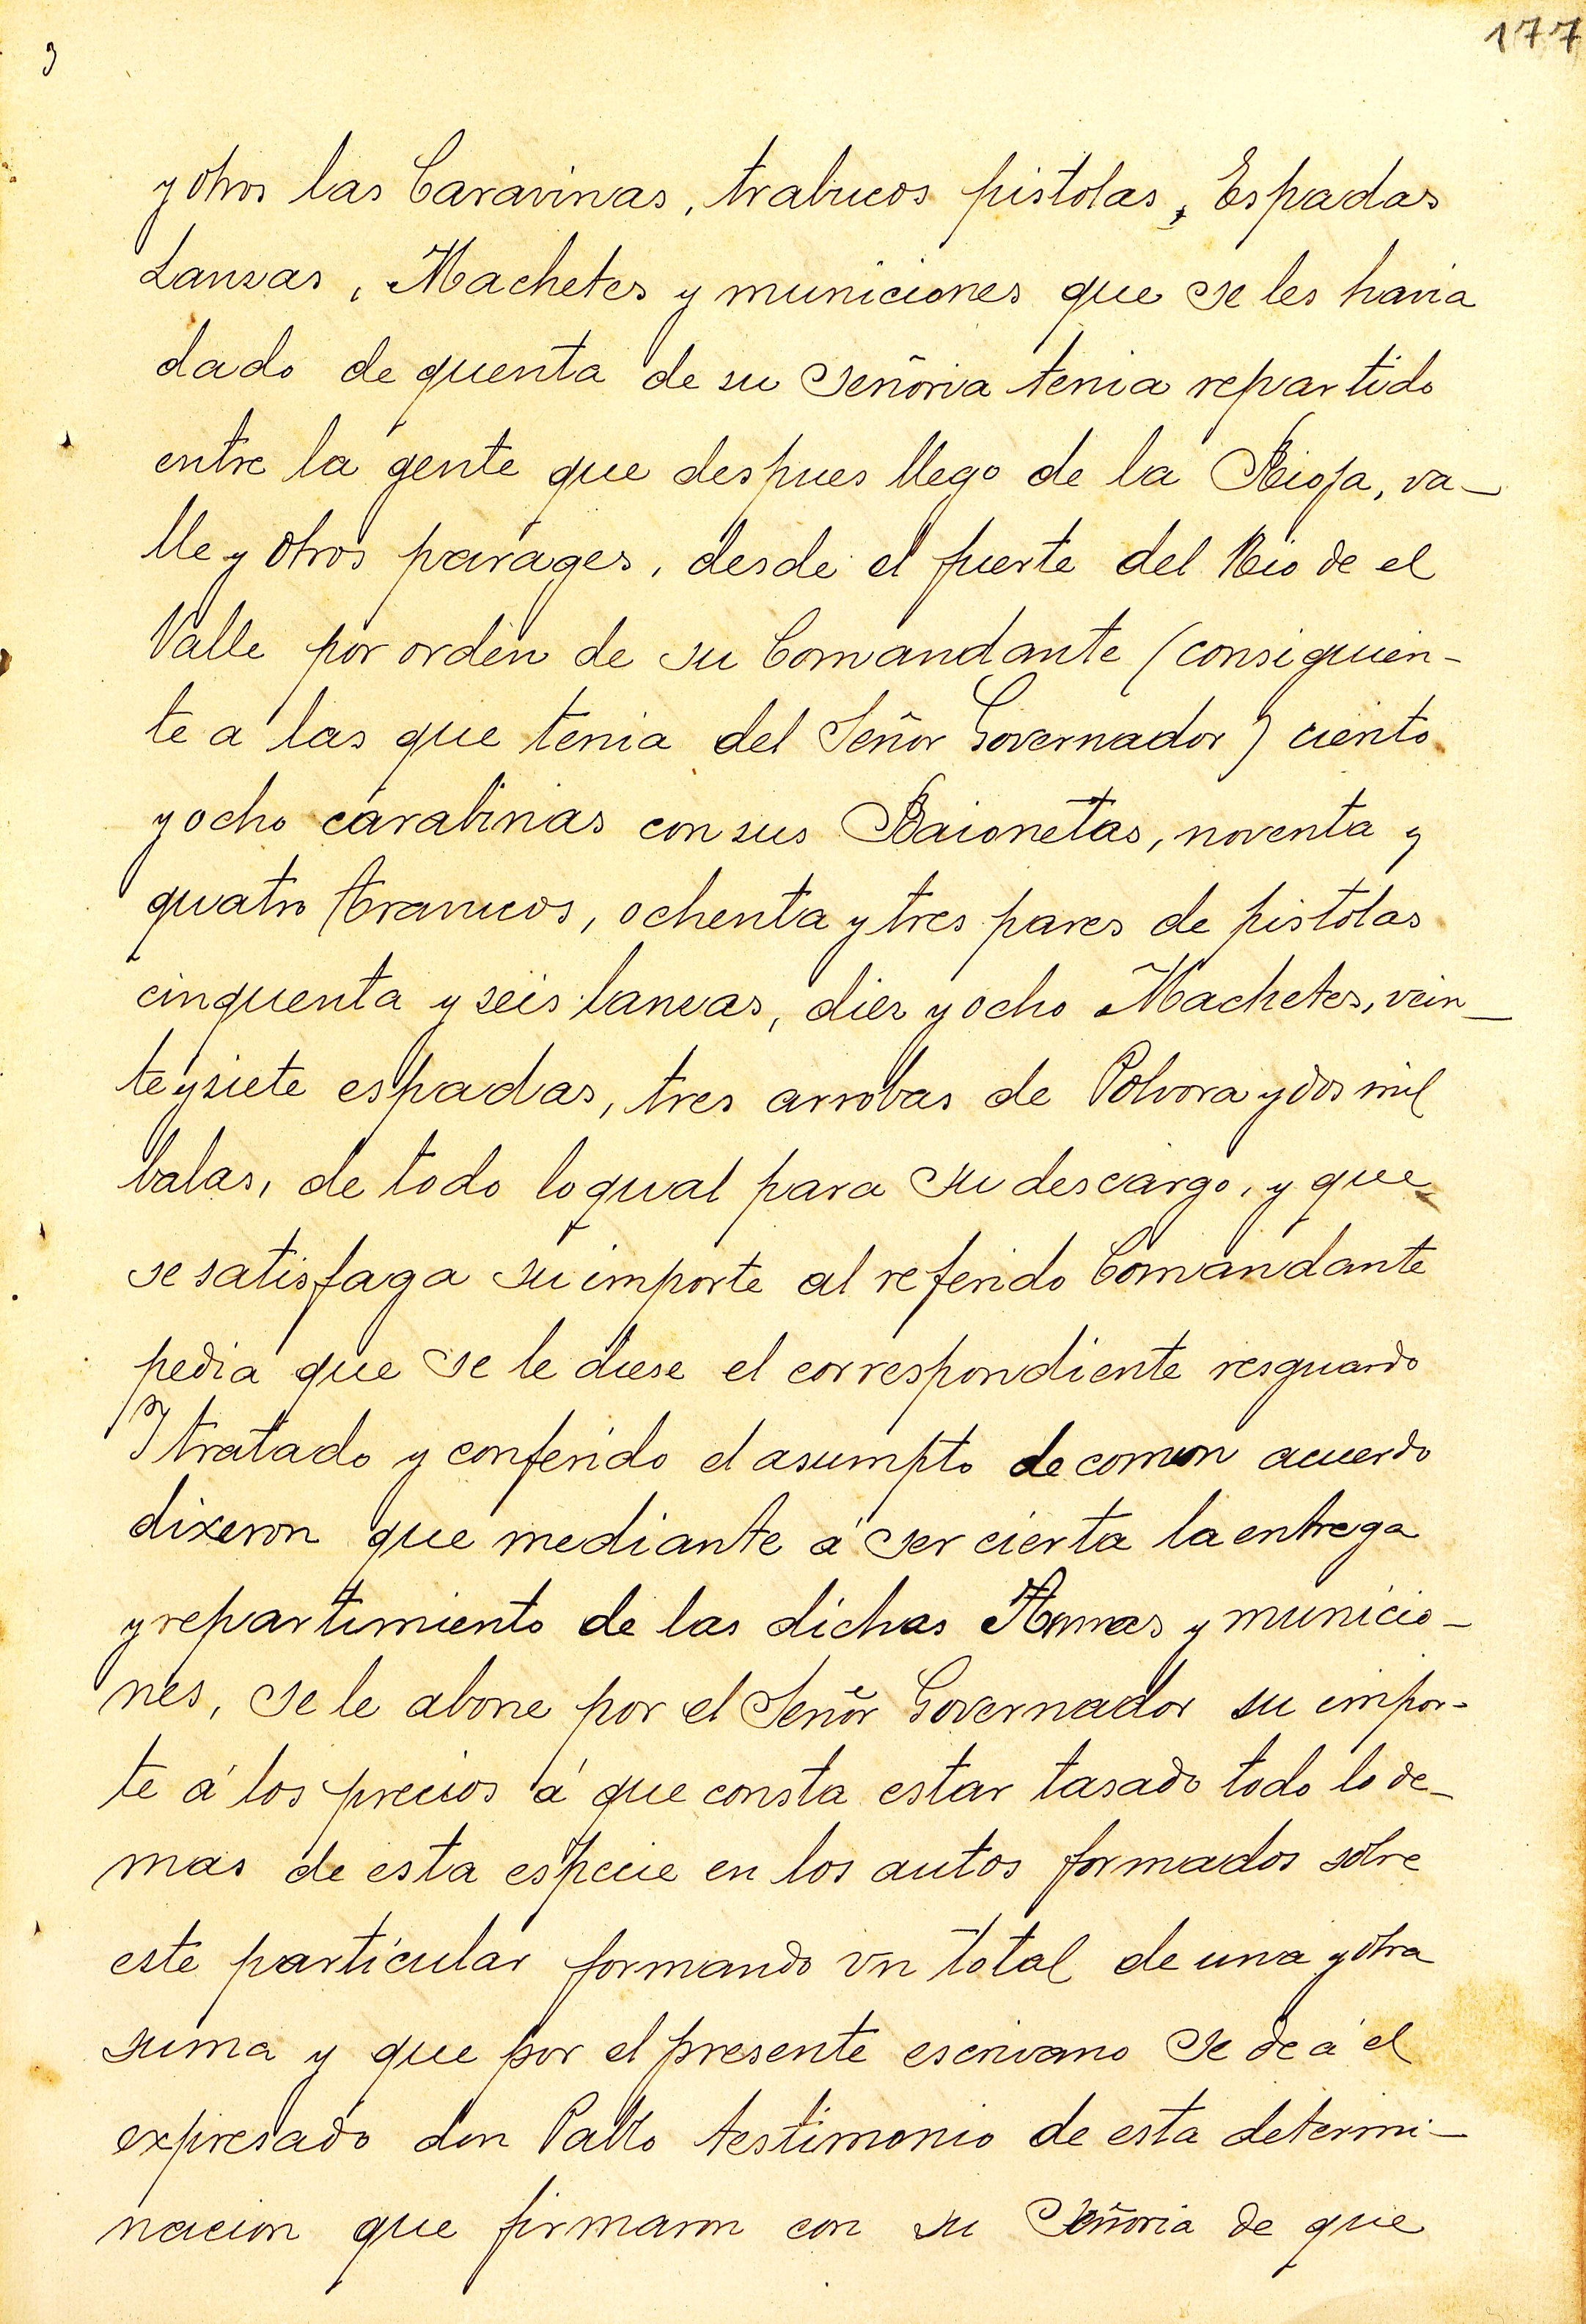 177
y otros las Caravinas, trabucos pistolas, Espadas
Lanzas, Machetes y municiones que se les havia
dado de quenta de su señoria tenia repartido
entre la gente que despues llego de la Rioja, va-
lle y otros parages, desde el fuerte del Rio de el
Valle por orden de su Comandante (consiguien-
te a las que tenia del Señor Governador) ciento
y ocho carabinas con sus Baionetas, noventa y
quatro travucos, ochenta y tres pares de pistolas
cinquenta y seis lanzas, diez y ocho Machetes, vein-
te y siete espadas, tres arrobas de Polvora y dos mil
balas, de todo lo qual para su descargo, y que
se satisfaga su importe al referido Comandante
pedia que se le diese el correspondiente resguardo
Y tratado y conferido el asumpto de comun acuerdo
dixeron que mediante á ser cierta la entrega
y repartimiento de las dichas Armas y municio-
nes, se le abone por el Señor Governador su impor-
te á los precios á que consta estar tasado todo lo de-
mas de esta especie en los autos formados sobre
este particular formando vn total de una y otra
suma y que por el presente escrivano se de á el
expresado don Pablo testimonio de esta determi-
nacion que firmaron con su Señoria de que